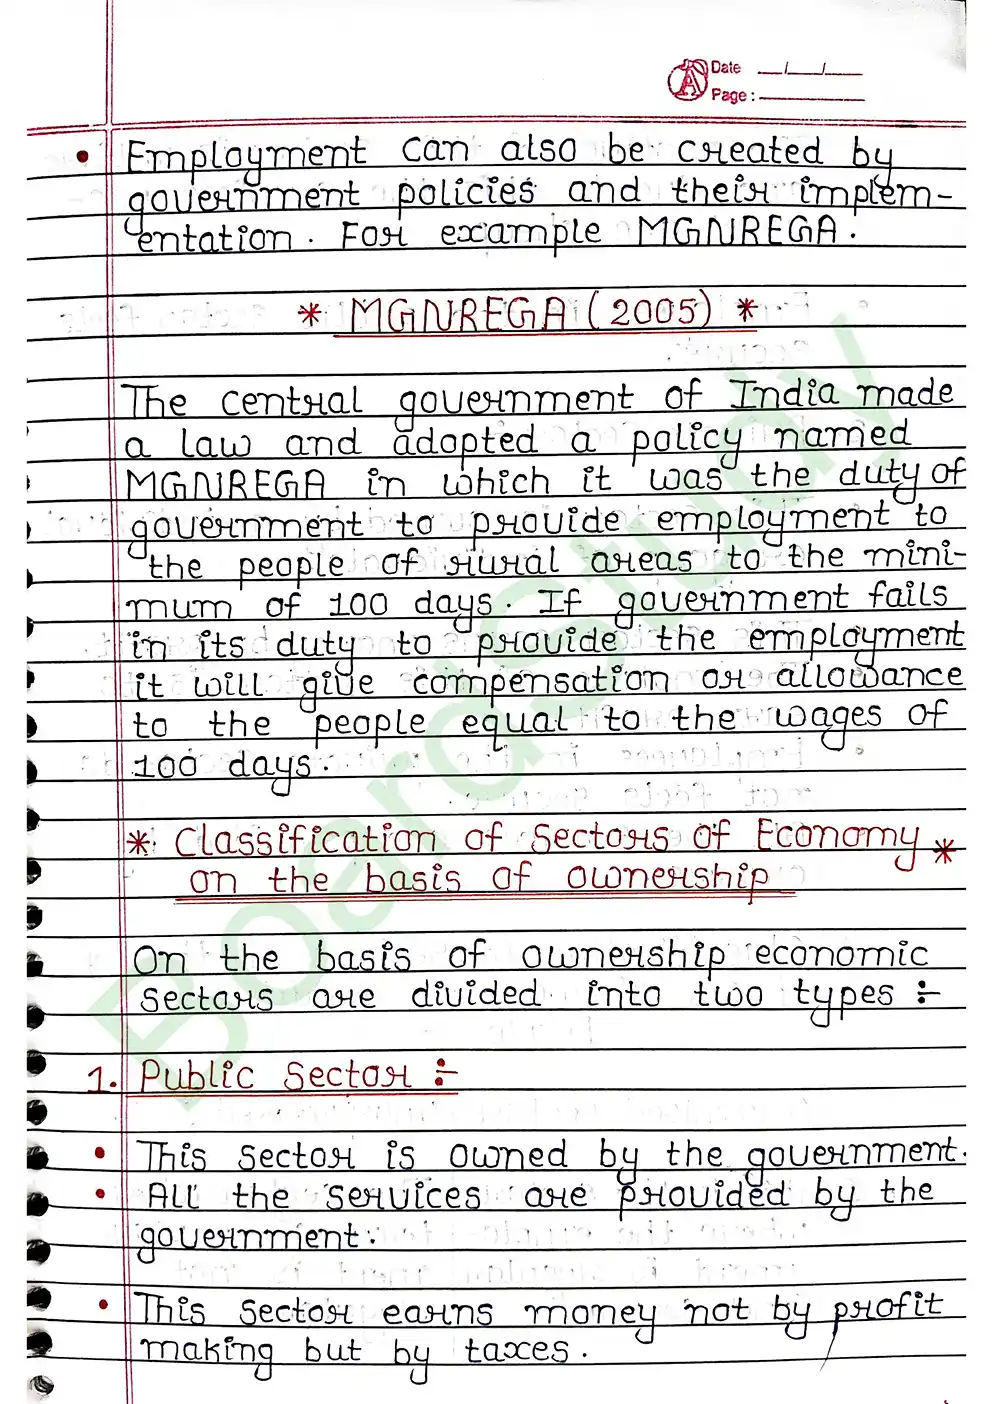 Date __/__/__
Page : ______
• Employment can also be created by
government policies and their implem-
entation. For example MGNREGA.
* MGNREGA (2005) *
The central government of India made
a law and adopted a policy named
MGNREGA in which it was the duty of
government to provide employment to
the people of rural areas to the mini-
mum of 100 days. If government fails
in its duty to provide the employment
it will give compensation or allowance
to the people equal to the wages of
100 days.
* Classification of Sectors of Economy *
on the basis of ownership
On the basis of ownership economic
sectors are divided into two types :-
1. Public Sector :-
• This sector is owned by the government.
• All the services are provided by the
government.
• This sector earns money not by profit
making but by taxes.
BoardStudy